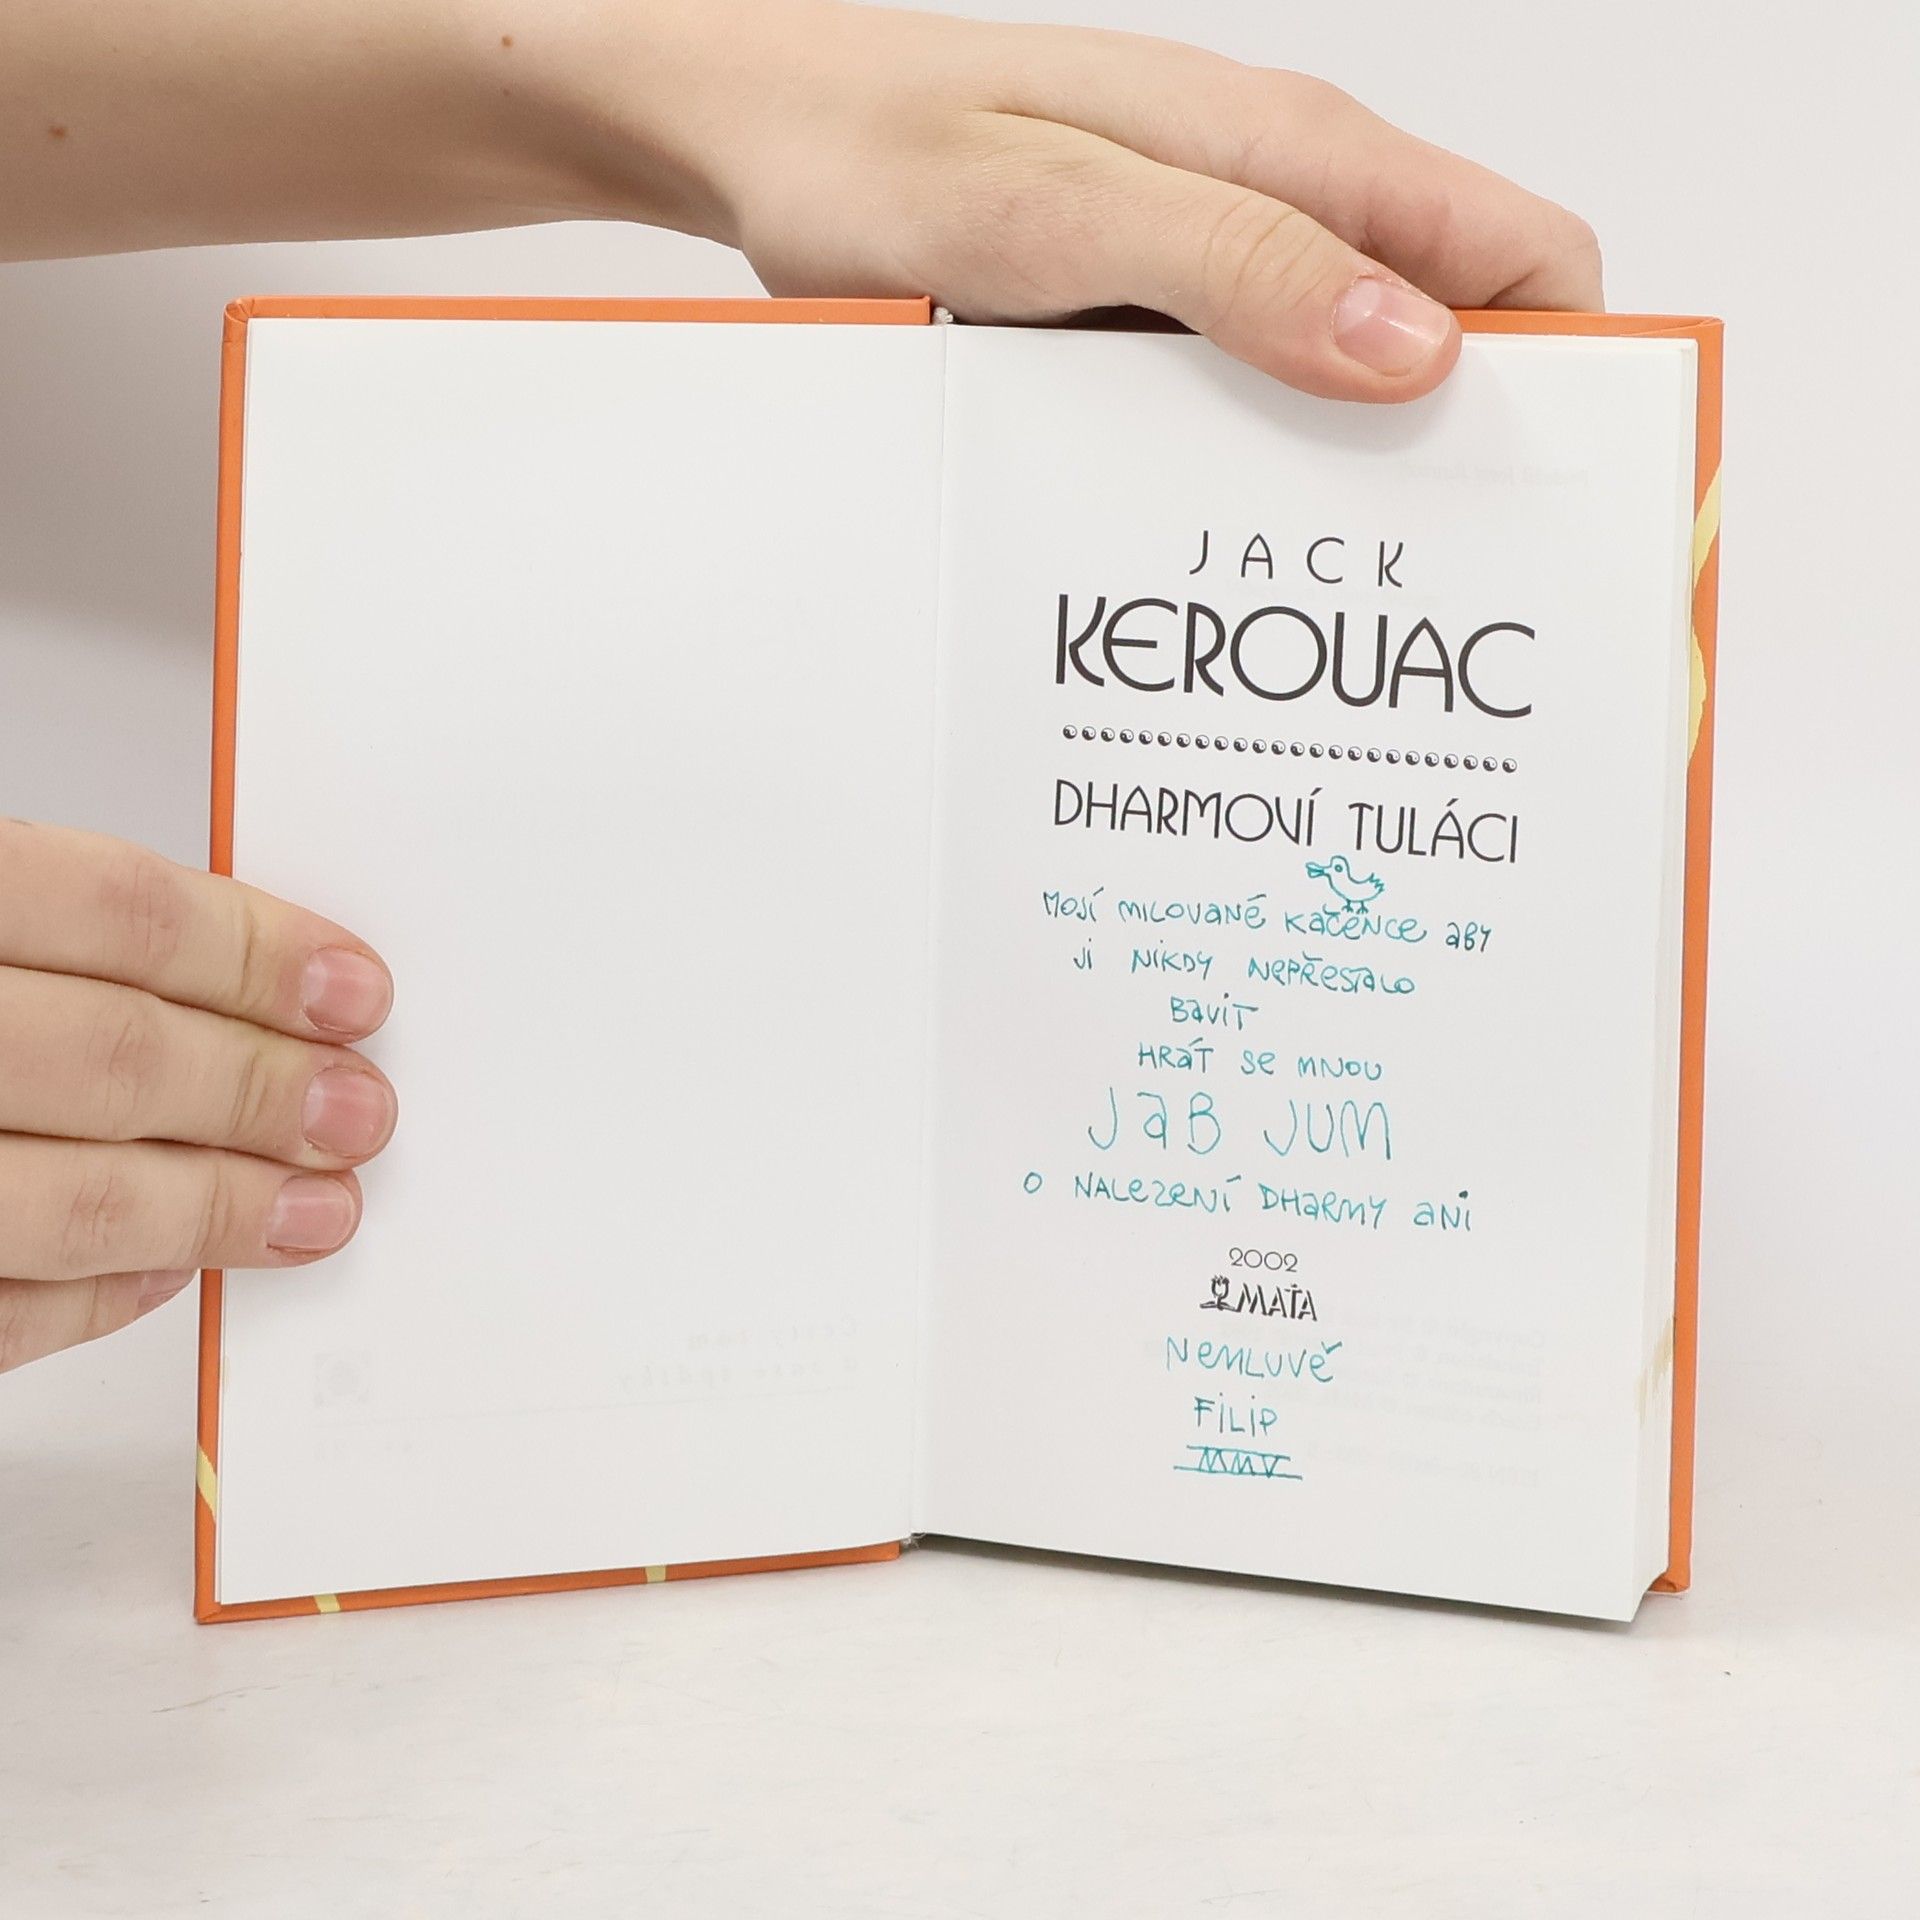 JACK
KEROUAC
DHARMOVÍ TULÁCI
MOJÍ MILOVANÉ KAČENCE ABY
JI NIKDY NEPŘESTALO
BAVIT
HRÁT SE MNOU
JAB JUM
O NALEZENÍ DHARMY ANI
2002
MAŤA
NEMLUVĚ
FILIP
MMV